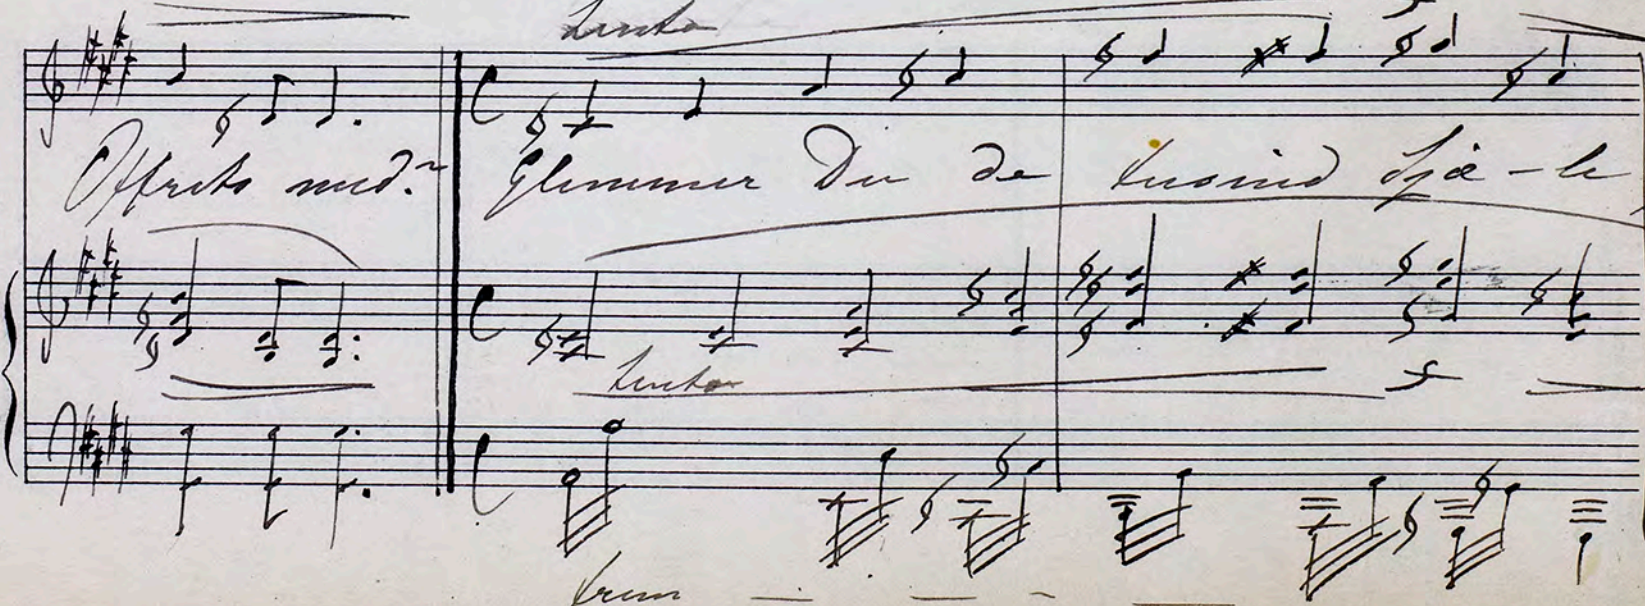 lento
Offrets med?~ Glimmer Du de tusind Sjæ-le
lento f
trem — — - —